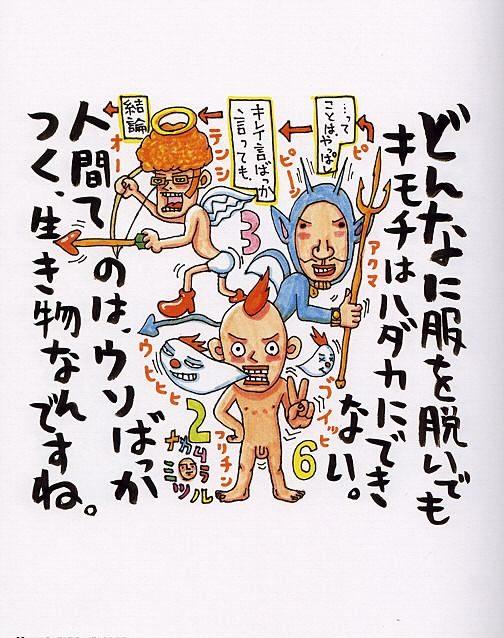 どんなに服を脱いでも
キモチはハダカにでき
ない。
…って
ことは、やっぱし
キレイ言ばっか
言っても、
結論
人間て
のは、ウソばっか
つく、生き物なんですね。
ピ
ピーッ
テンシ
オー
アクマ
3
ウヒヒヒ
ブイッヒ
フリチン
2
6
ナカムラ
ミツル